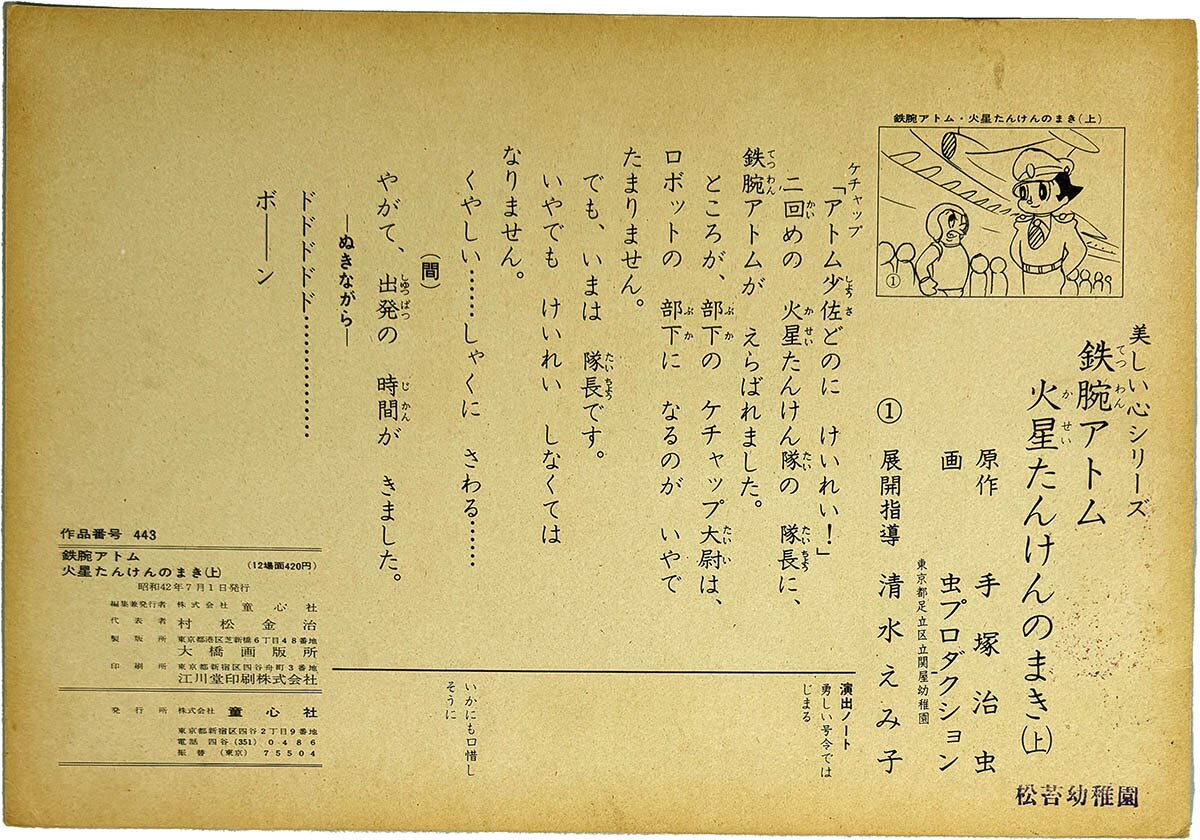 鉄腕アトム・火星たんけんのまき(上)
①
美しい心シリーズ
鉄腕アトム
火星たんけんのまき(上)
原作 手塚治虫
画 虫プロダクション
東京都足立区立関屋幼稚園
① 展開指導 清水えみ子
ケチャップ
「アトム少佐どのに けいれい!」
二回めの 火星たんけん隊の 隊長に、
鉄腕アトムが えらばれました。
ところが、部下の ケチャップ大尉は、
ロボットの 部下に なるのが いやで
たまりません。
でも、いまは 隊長です。
いやでも けいれい しなくては
なりません。
くやしい……しゃくに さわる……
(間)
やがて、出発の 時間が きました。
―ぬきながら―
ドドドドド…………
ボ――ン
演出ノート
勇しい号令では
じまる
いかにも口惜し
そうに
作品番号 443
鉄腕アトム
火星たんけんのまき(上)
(12場面420円)
昭和42年7月1日発行
編集兼発行者 株式会社 童心社
代表者 村松金治
製版所 東京都港区芝新橋6丁目48番地
大橋画版所
印刷所 東京都新宿区四谷舟町3番地
江川堂印刷株式会社
発行所 株式会社 童心社
東京都新宿区四谷2丁目9番地
電話 四谷(351)0486
振替(東京)75504
松苔幼稚園